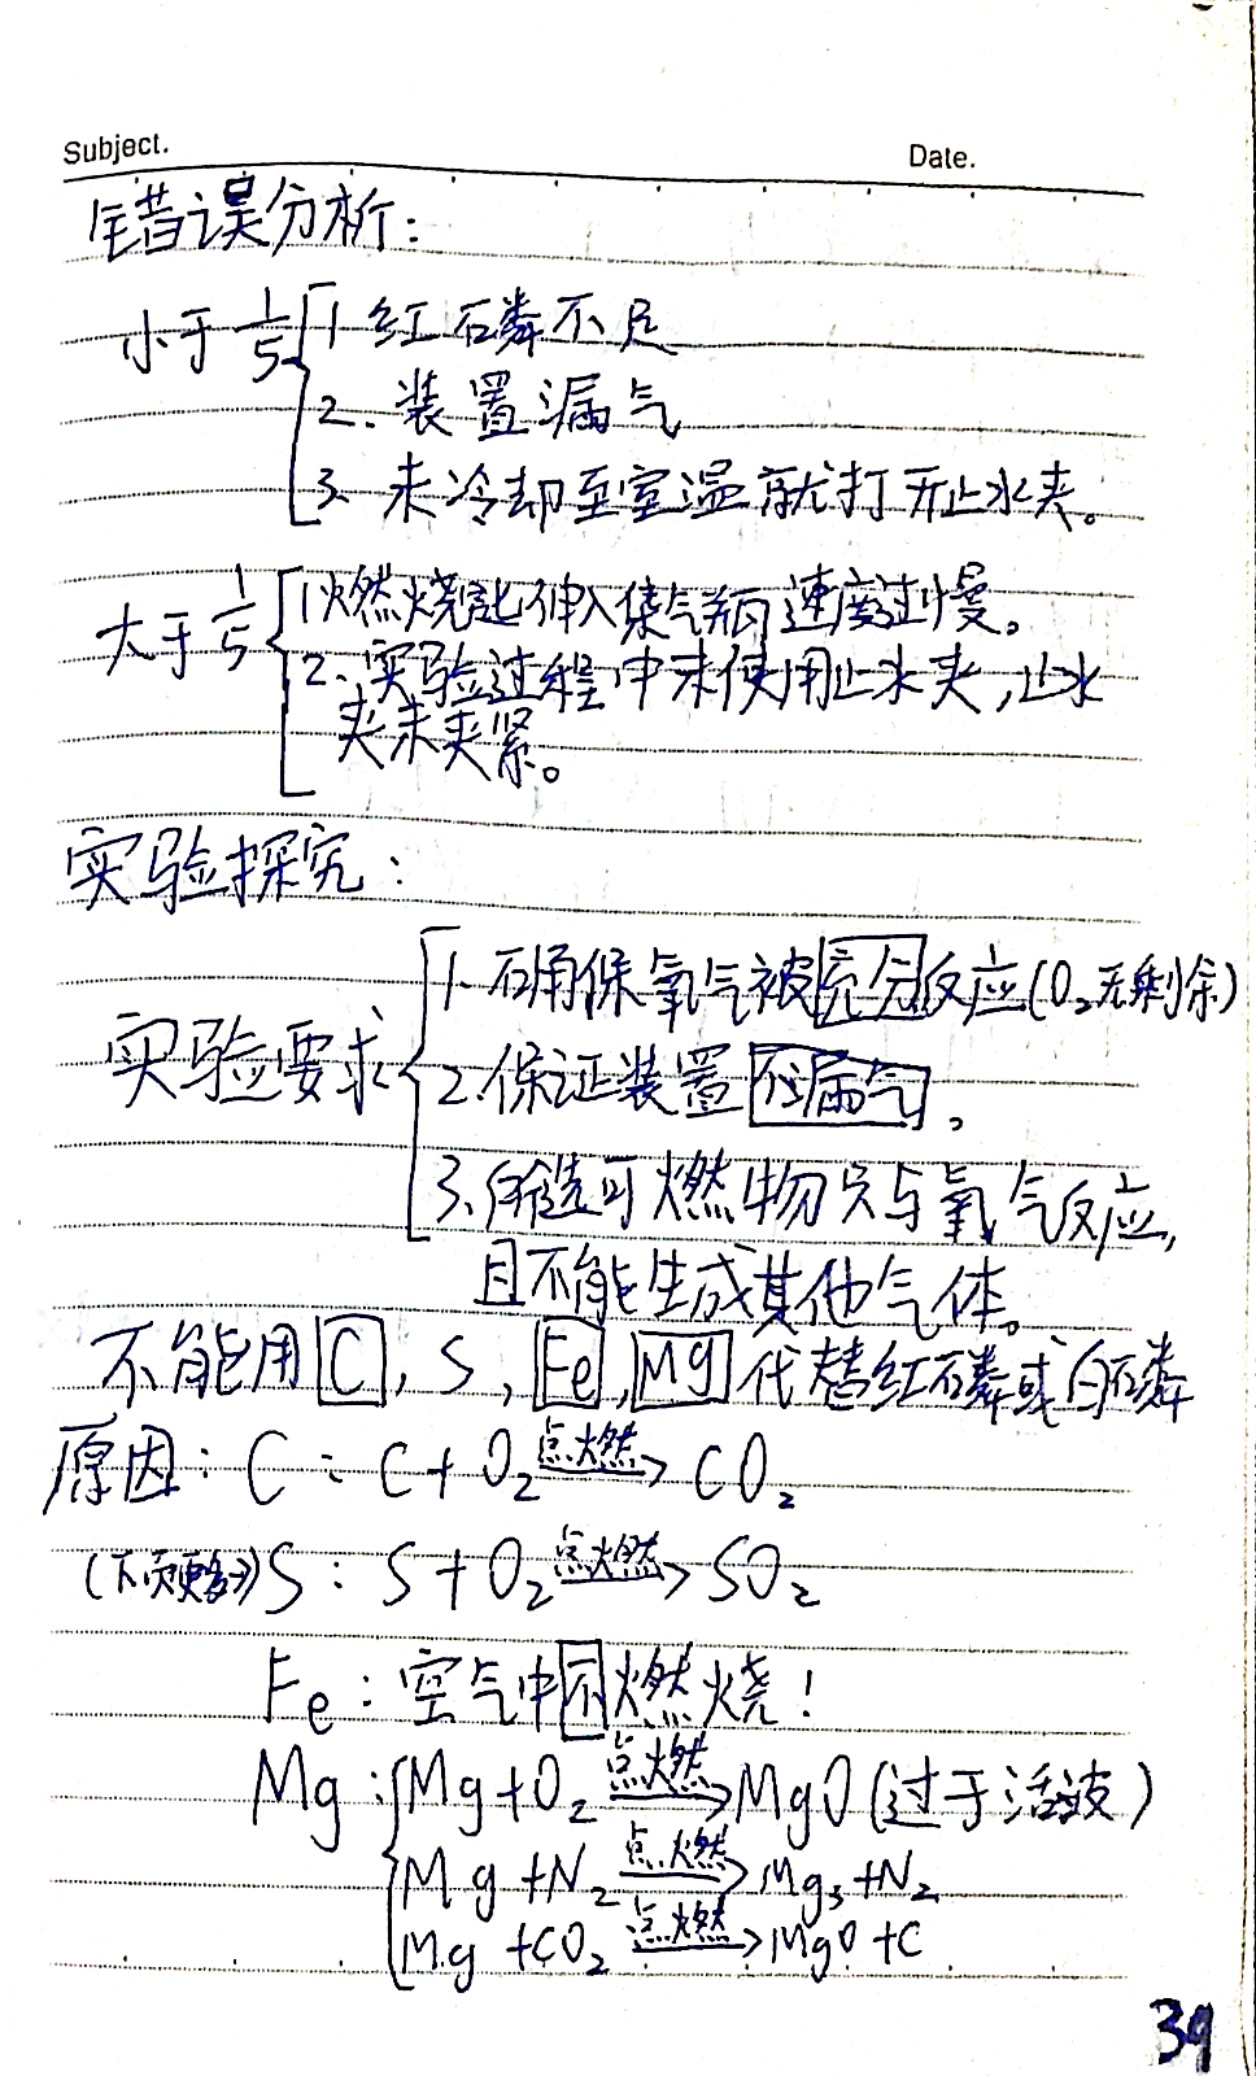 Subject.
Date.
错误分析:
小于1/5 1 红磷不足
2. 装置漏气
3. 未冷却至室温就打开止水夹。
大于1/5 1 燃烧匙伸入集气瓶速度过慢。
2. 实验过程中未使用止水夹,止水
夹未夹紧。
实验探究:
实验要求 1. 确保氧气被充分反应(O₂无剩余)
2. 保证装置不漏气。
3. 所选可燃物只与氧气反应,
且不能生成其他气体。
不能用C, S, Fe, Mg代替红磷或白磷
原因: C: C + O₂ 点燃→ CO₂
(下页更多→) S: S + O₂ 点燃→ SO₂
Fe: 空气中不燃烧!
Mg: Mg+O₂ 点燃→ MgO (过于活波)
Mg +N₂ 点燃→ Mg₃+N₂
Mg +CO₂ 点燃→ MgO +C
39